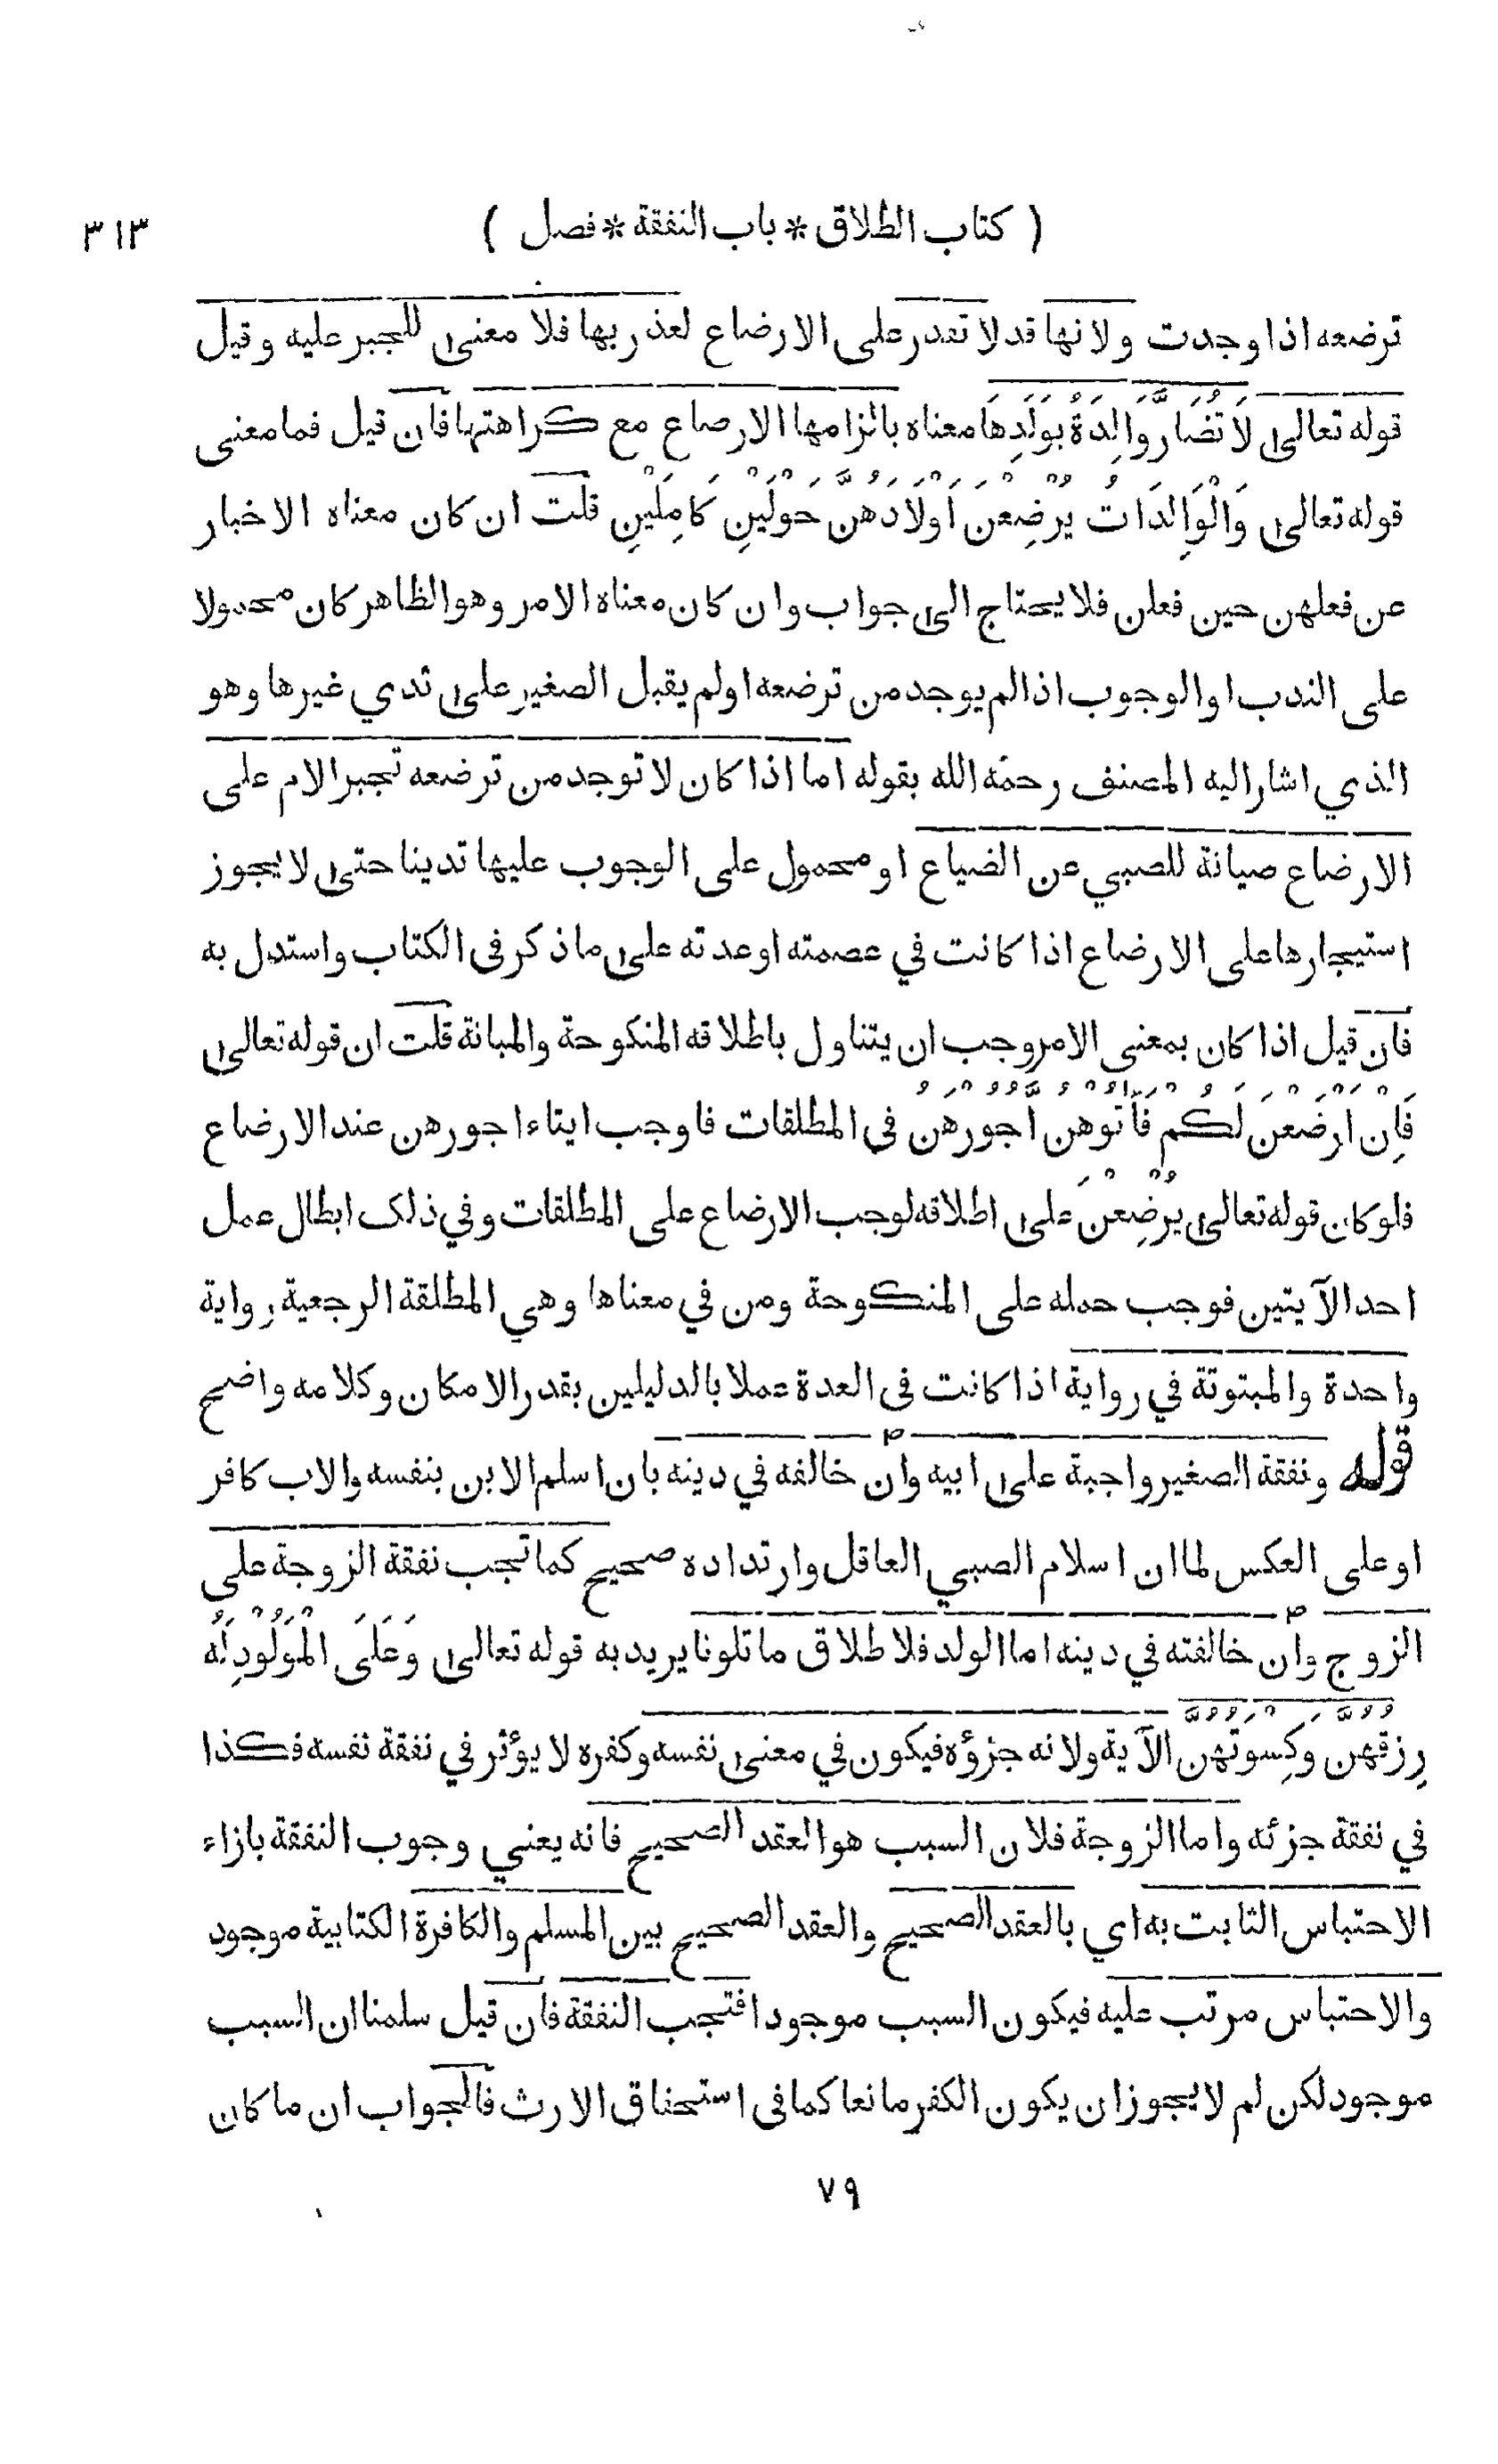 ( كتاب الطلاق * باب النفقة * فصل ) ٣١٣
ترضعه اذا وجدت ولانها قد لا تقدر على الارضاع لعذر بها فلا معنى للجبر عليه وقيل
قوله تعالى لَا تُضَارَّ وَالِدَةٌ بِوَلَدِهَا معناه بالزامها الارضاع مع كراهتها فان قيل فما معنى
قوله تعالى وَالْوَالِدَاتُ يُرْضِعْنَ أَوْلَادَهُنَّ حَوْلَيْنِ كَامِلَيْنِ قلت ان كان معناه الاخبار
عن فعلهن حين فعلن فلا يحتاج الى جواب وان كان معناه الامر وهو الظاهر كان محمولا
على الندب او الوجوب اذا لم يوجد من ترضعه او لم يقبل الصغير على ثدي غيرها وهو
الذي اشار اليه المصنف رحمه الله بقوله اما اذا كان لا توجد من ترضعه تجبر الام على
الارضاع صيانة للصبي عن الضياع او محمول على الوجوب عليها تدينا حتى لا يجوز
استيجارها على الارضاع اذا كانت في عصمته او عدته على ما ذكر فى الكتاب واستدل به
فان قيل اذا كان بمعنى الامر وجب ان يتناول باطلاقه المنكوحة والمبانة قلت ان قوله تعالى
فَاِنْ اَرْضَعْنَ لَكُمْ فَآتُوْهُنَّ اُجُوْرَهُنَّ فى المطلقات فاوجب ايتاء اجورهن عند الارضاع
فلو كان قوله تعالى يُرْضِعْنَ على اطلاقه لوجب الارضاع على المطلقات وفي ذلك ابطال عمل
احد الآيتين فوجب حمله على المنكوحة ومن في معناها وهي المطلقة الرجعية رواية
واحدة والمبتوتة في رواية اذا كانت فى العدة عملا بالدليلين بقدر الامكان وكلامه واضح
قوله ونفقة الصغير واجبة على ابيه وان خالفه في دينه بان اسلم الابن بنفسه والاب كافر
او على العكس لما ان اسلام الصبي العاقل وارتداده صحيح كما تجب نفقة الزوجة على
الزوج وان خالفته في دينه اما الولد فلاطلاق ما تلونا يريد به قوله تعالى وَعَلَى الْمَوْلُوْدِ لَهُ
رِزْقُهُنَّ وَكِسْوَتُهُنَّ الآية ولانه جزؤه فيكون في معنى نفسه وكفره لا يؤثر في نفقة نفسه فكذا
في نفقة جزئه واما الزوجة فلان السبب هو العقد الصحيح فانه يعني وجوب النفقة بازاء
الاحتباس الثابت به اي بالعقد الصحيح والعقد الصحيح بين المسلم والكافرة الكتابية موجود
والاحتباس مرتب عليه فيكون السبب موجودا فتجب النفقة فان قيل سلمنا ان السبب
موجود لكن لم لا يجوز ان يكون الكفر مانعا كما فى استحقاق الارث فالجواب ان ما كان
٧٩